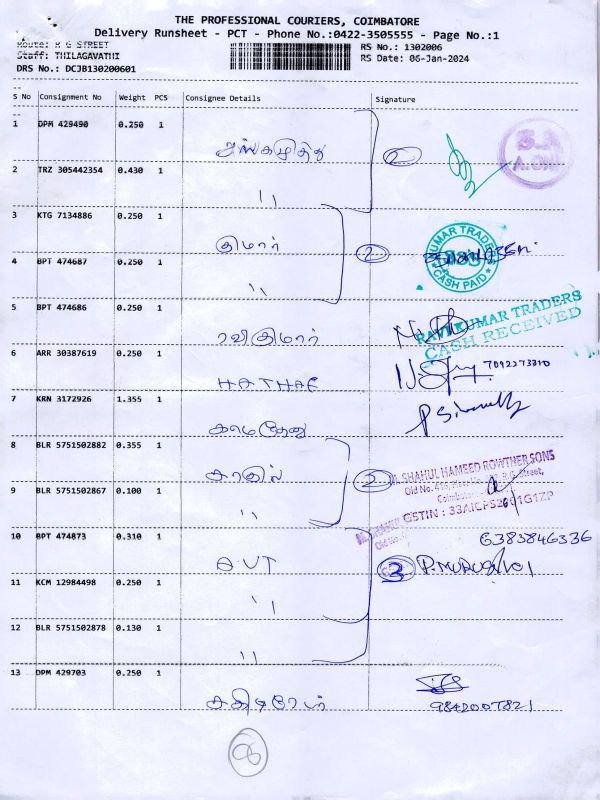 THE PROFESSIONAL COURIERS, COIMBATORE
Delivery Runsheet - PCT - Phone No.:0422-3505555 - Page No.:1
Route: R G STREET
Staff: THILAGAVATHI
DRS No.: DCJB130200601
RS No.: 1302006
RS Date: 06-Jan-2024
S No Consignment No Weight PCS Consignee Details Signature
1 DPM 429490 0.250 1
2 TRZ 305442354 0.430 1
"
3 KTG 7134886 0.250 1
குமார்
4 BPT 474687 0.250 1
"
2
KUMAR TRADE
CASH PAID
5 BPT 474686 0.250 1
ரவிகுமார்
RAVIKUMAR TRADERS
CASH RECEIVED
6 ARR 30387619 0.250 1
7092273310
7 KRN 3172926 1.355 1
காமதேனு
8 BLR 5751502882 0.355 1
காதில்
9 BLR 5751502867 0.100 1
"
2
M. SHAHUL HAMEED ROWTHER SONS
Street,
Coimbatore
10 BPT 474873 0.310 1
6383846336
3
11 KCM 12984498 0.250 1
"
12 BLR 5751502878 0.130 1
"
13 DPM 429703 0.250 1
9842007821
8